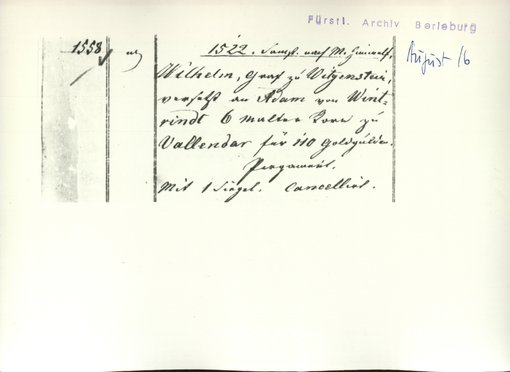 Fürstl. Archiv Berleburg
August 16
1558
1522. Sampst. nach M. Heimsf.
Wilhelm, Graf zu Witgenstein,
versetzt an Adam von Wint-
rindt 6 Malter Korn zu
Vallendar für 110 Goldgulden.
Pergament.
Mit 1 Siegel. Cancellirt.